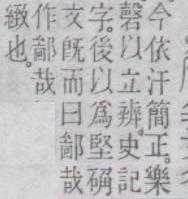 今依汗簡正。樂
磬以立辨。史記
字。後以爲堅确
文旣而曰鄙哉
作鄙哉
緻也。